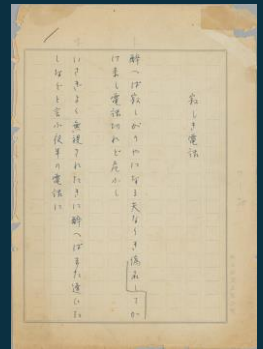 寂しき電話
酔へば寂しがりやになる夫なりき偽名してか
け来し電話切れど危ふし
いさぎよく無視されたきに酔へばまた逢ひた
しなどと言ふ夜半の電話に